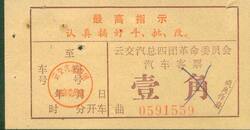 最高指示
认真搞好斗、批、改。
云交汽总四团革命委员会
汽车客票
至
车 月
号 日
年
时 分开车
壹角
曲 0591559